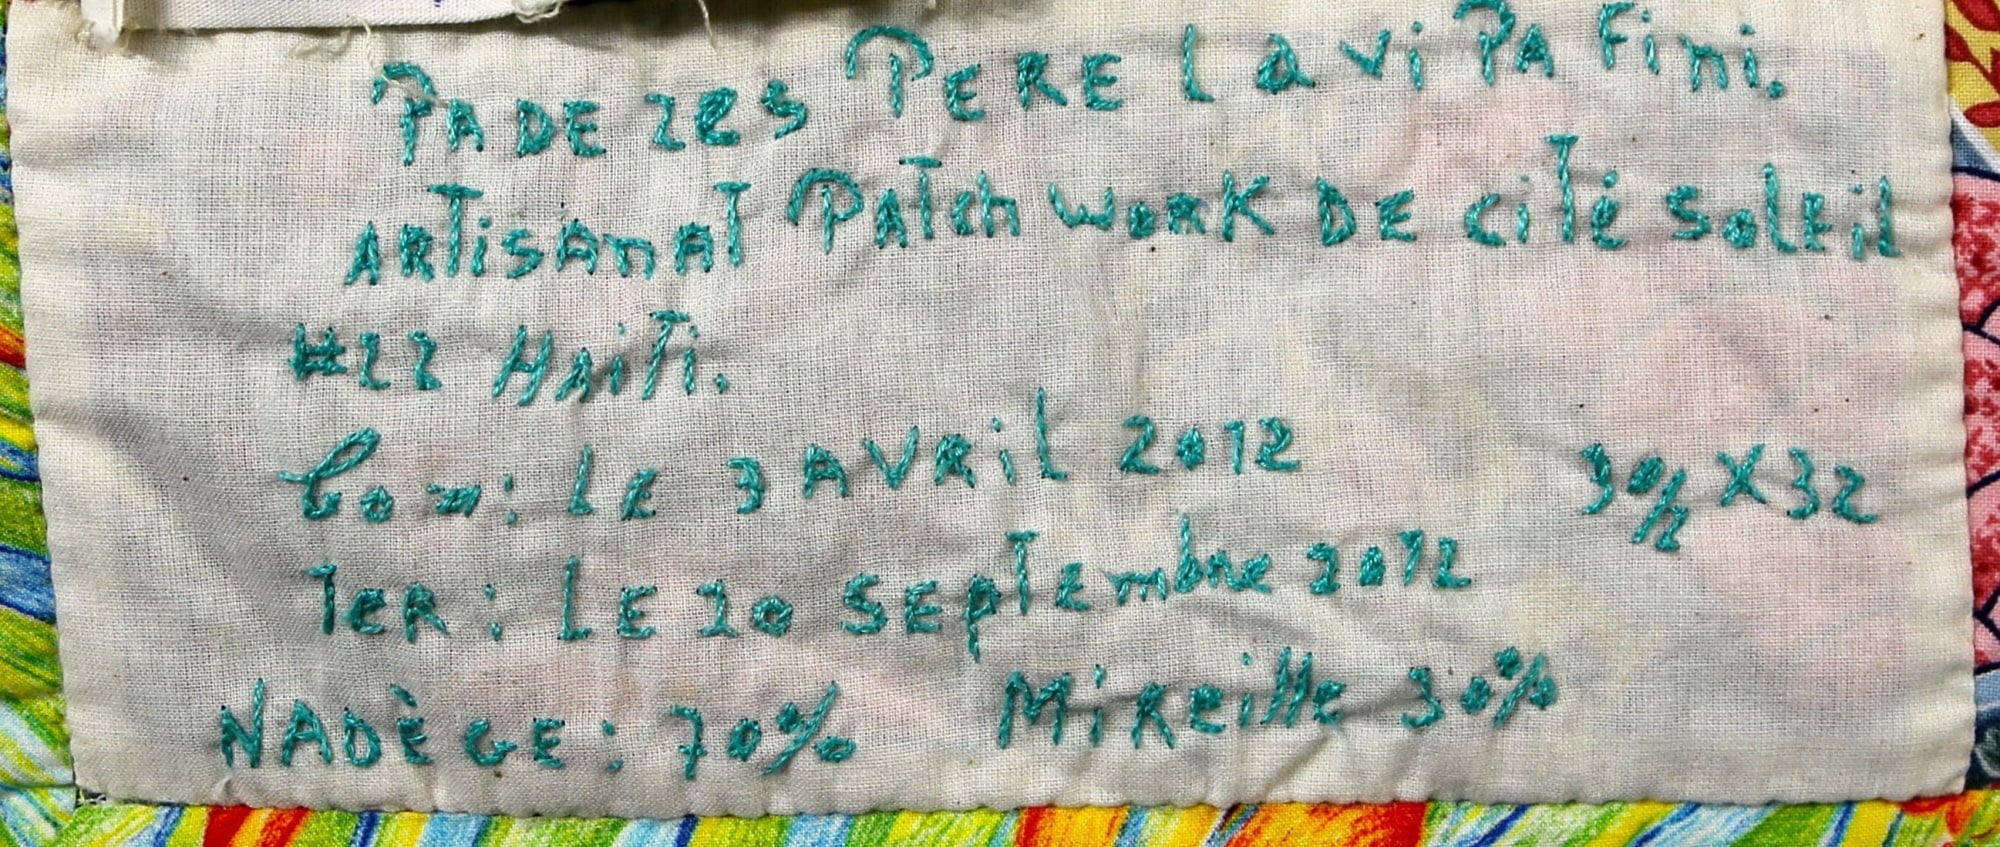 PADEZES PERE LaviPA Fini.
ARTiSAnAT PATch WORK DE ciTé SoLEil
#22 HAiTi.
Com: LE 3 AVRiL 2012 30/2 X 32
TER: LE 20 SEpTEmbre 2012
NADÈGE: 70% MiReille 30%